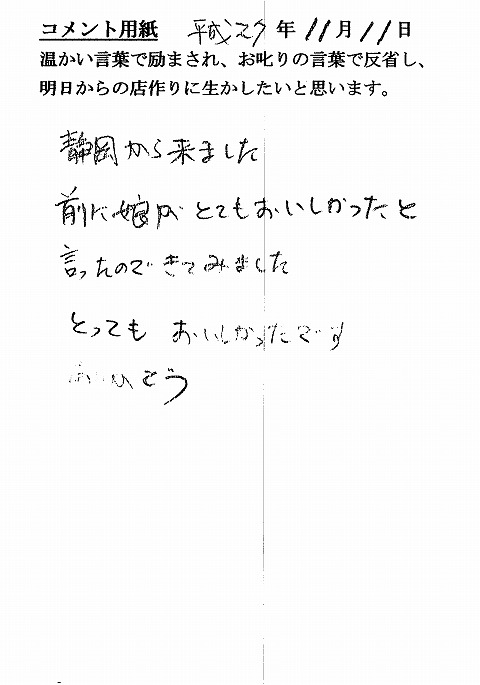 コメント用紙 平成27年11月11日
温かい言葉で励まされ、お叱りの言葉で反省し、
明日からの店作りに生かしたいと思います。
静岡から来ました
前に娘が とてもおいしかったと
言ったので きてみました
とっても おいしかったです
ありがとう